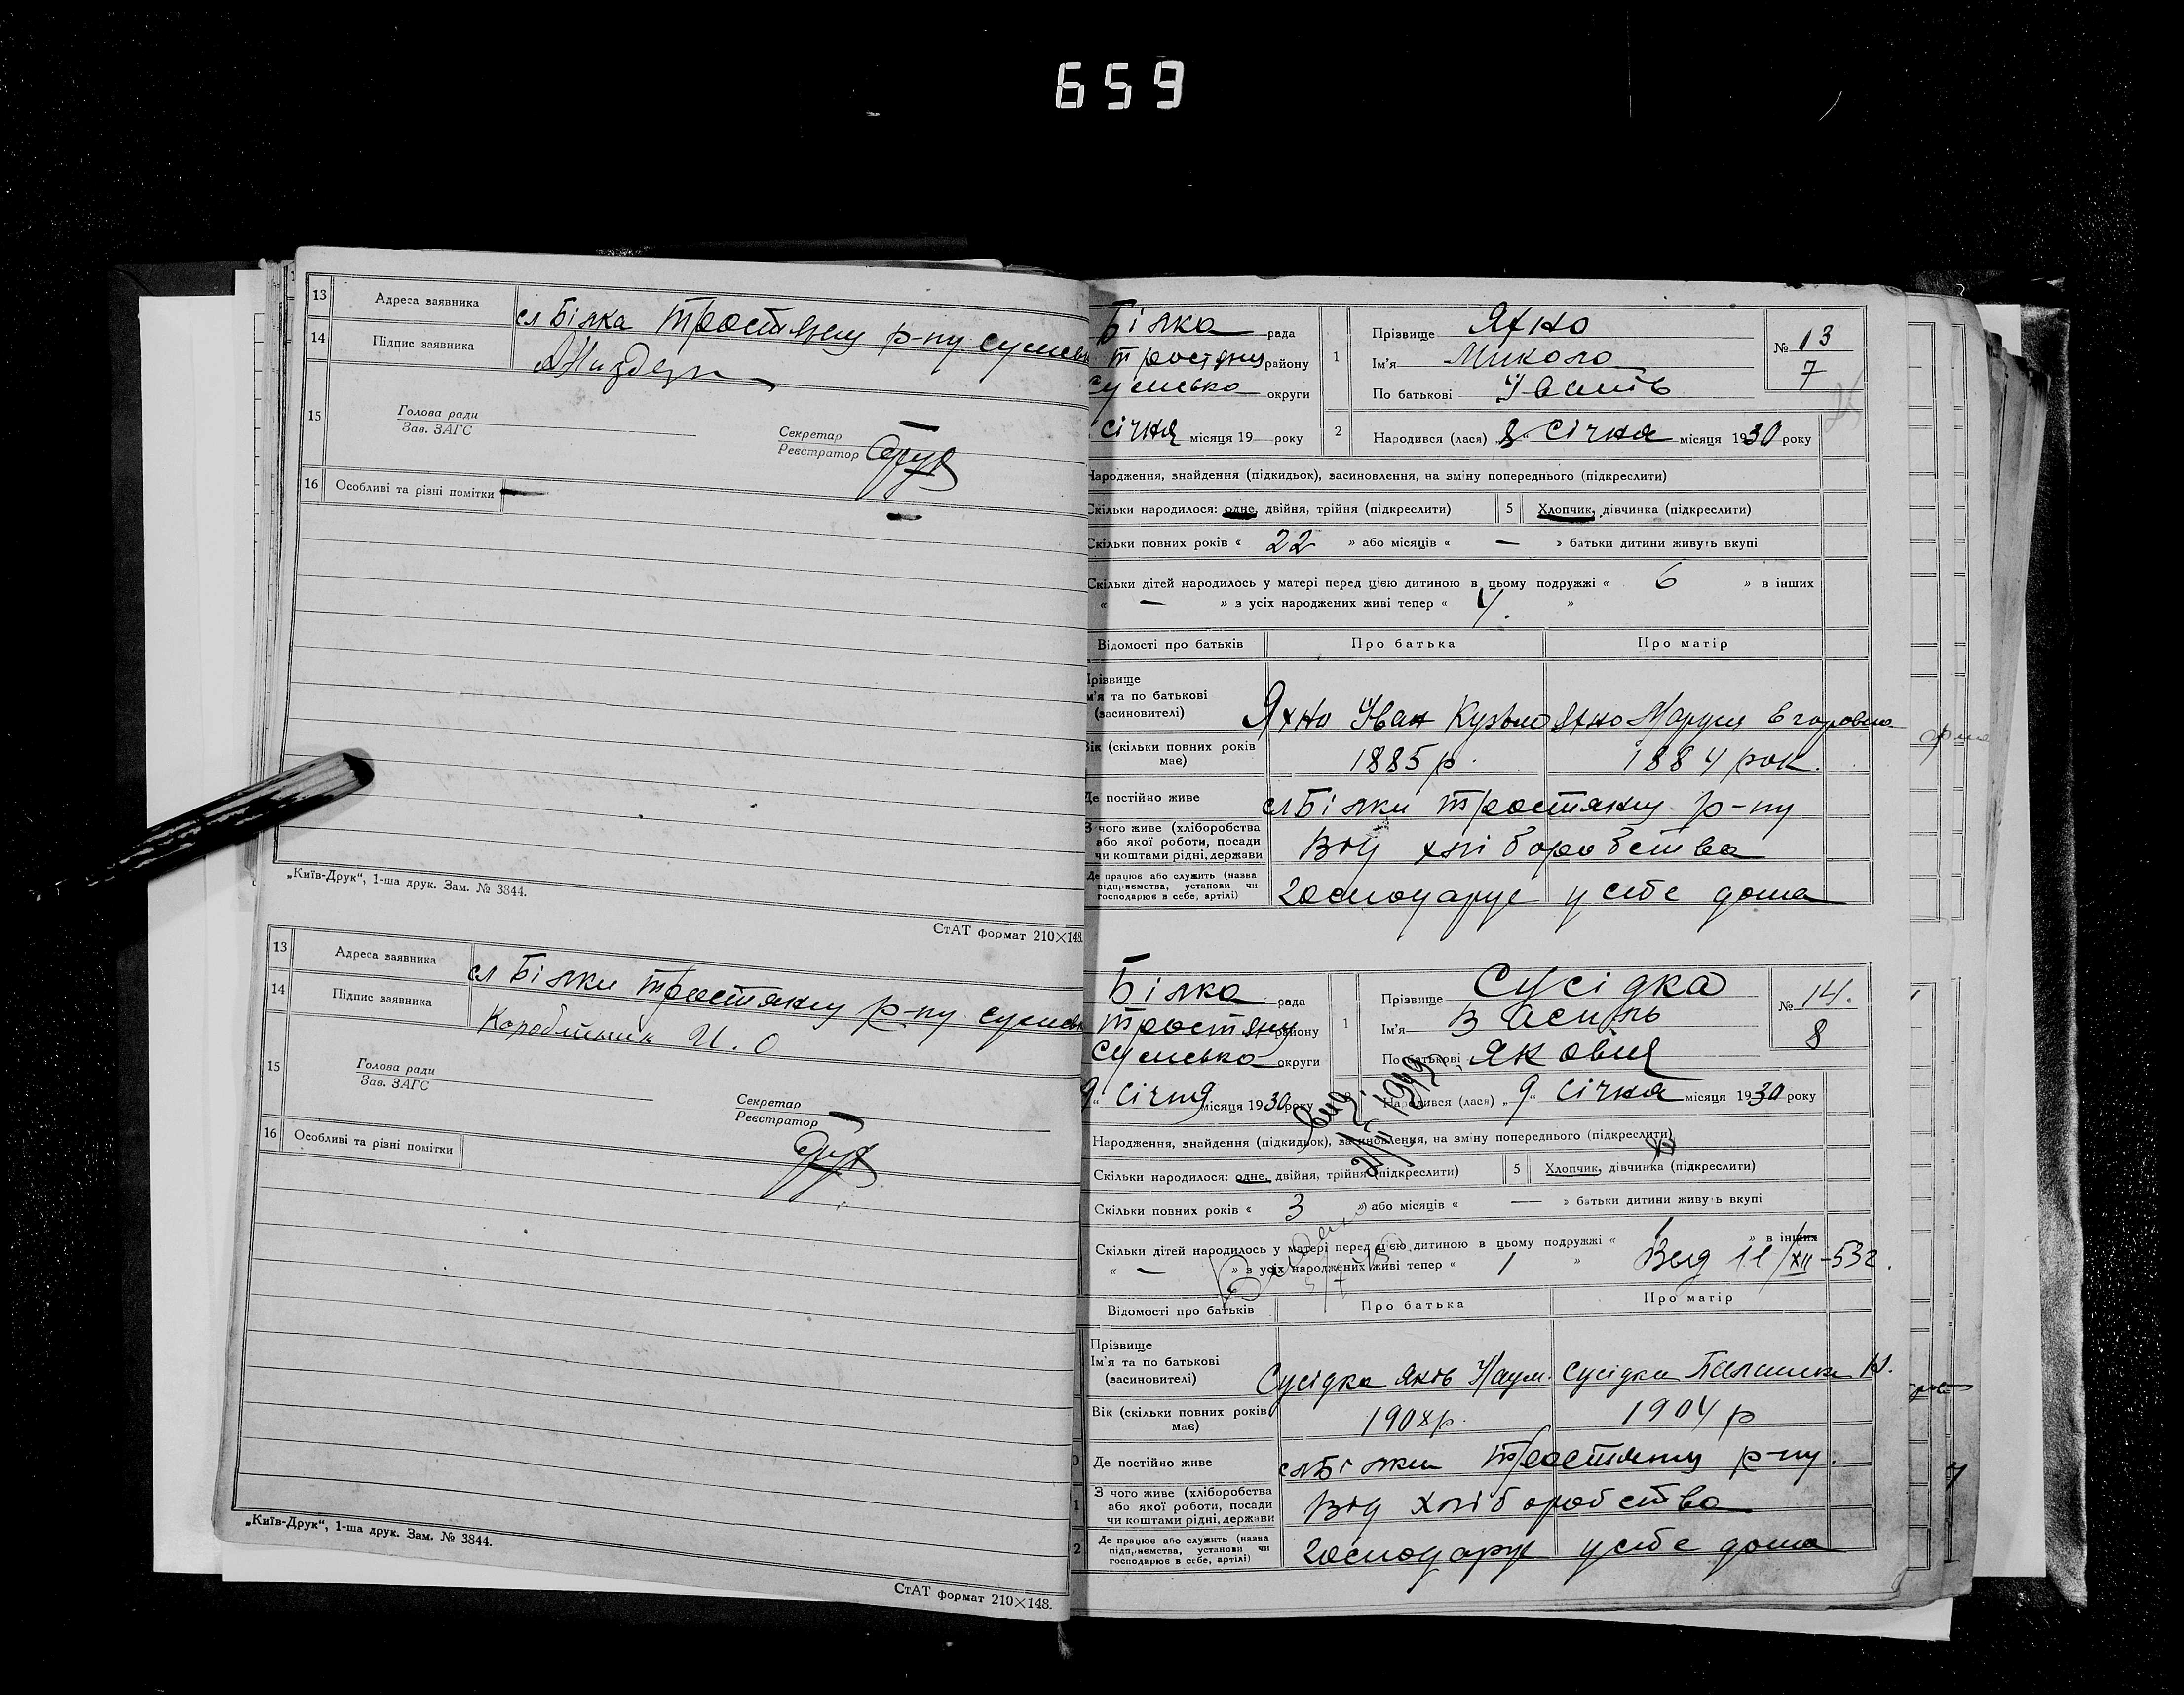 659
13 Адреса заявника сл Білка Тростянцу р-ну сумськ
14 Підпис заявника
15 Голова ради
Зав. ЗАГС
Секретар
Реєстратор
16 Особливі та різні помітки —
„Київ-Друк“, 1-ша друк. Зам. № 3844.
СтАТ формат 210×148.
13 Адреса заявника сл Білки Тростянцу р-ну сумськ
14 Підпис заявника И. О
15 Голова ради
Зав. ЗАГС
Секретар
Реєстратор
16 Особливі та різні помітки
„Київ-Друк“, 1-ша друк. Зам. № 3844.
СтАТ формат 210×148.
Білка рада
району
округи
січня місяця 19 — року
1 Прізвище Яхно
Ім'я Микола
По батькові Іванів
№ 13
7
2 Народився (лася) „8“ Січня місяця 1930 року
Народження, знайдення (підкидьок), засиновлення, на зміну попереднього (підкреслити)
Скільки народилося: одне, двійня, трійня (підкреслити) 5 Хлопчик, дівчинка (підкреслити)
Скільки повних років « 22 » або місяців « — » батьки дитини живуть вкупі
Скільки дітей народилось у матері перед цією дитиною в цьому подружжі « 6 » в інших
« — » з усіх народжених живі тепер « 4 »
Відомості про батьків Про батька Про матір
Прізвище
Ім'я та по батькові
(засиновителі) Яхно Іван Кузьмо Яхно Маруся Егоровна
Вік (скільки повних років
має) 1885 р. 1884 рок.
Де постійно живе сл Білки Тростянцу р-ну
З чого живе (хліборобства
або якої роботи, посади
чи коштами рідні, держави Від хліборобства
Де працює або служить (назва
підприємства, установи чи
господарює в себе, артілі) Господарує у себе дома
Білка рада
району
округи
9“ Січня місяця 1930 року
1 Прізвище Сусідка
Ім'я Василь
По батькові Яковів
№ 14.
8
Народився (лася) „9“ Січня місяця 1930 року
Народження, знайдення (підкидьок), засиновлення, на зміну попереднього (підкреслити)
Скільки народилося: одне, двійня, трійня (підкреслити) 5 Хлопчик, дівчинка (підкреслити)
Скільки повних років « 3 » або місяців « — » батьки дитини живуть вкупі
Скільки дітей народилось у матері перед цією дитиною в цьому подружжі « 1 » в інших
« — » з усіх народжених живі тепер « 1 »
Выд 11/XII-53г.
Відомості про батьків Про батька Про матір
Прізвище
Ім'я та по батькові
(засиновителі) Сусідка Яків Наум. Сусідка Палашка Н.
Вік (скільки повних років
має) 1908 р. 1904 р
Де постійно живе сл Білки Тростянцу р-ну.
З чого живе (хліборобства
або якої роботи, посади
чи коштами рідні, держави Від хліборобства
Де працює або служить (назва
підприємства, установи чи
господарює в себе, артілі) Господарує у себе дома